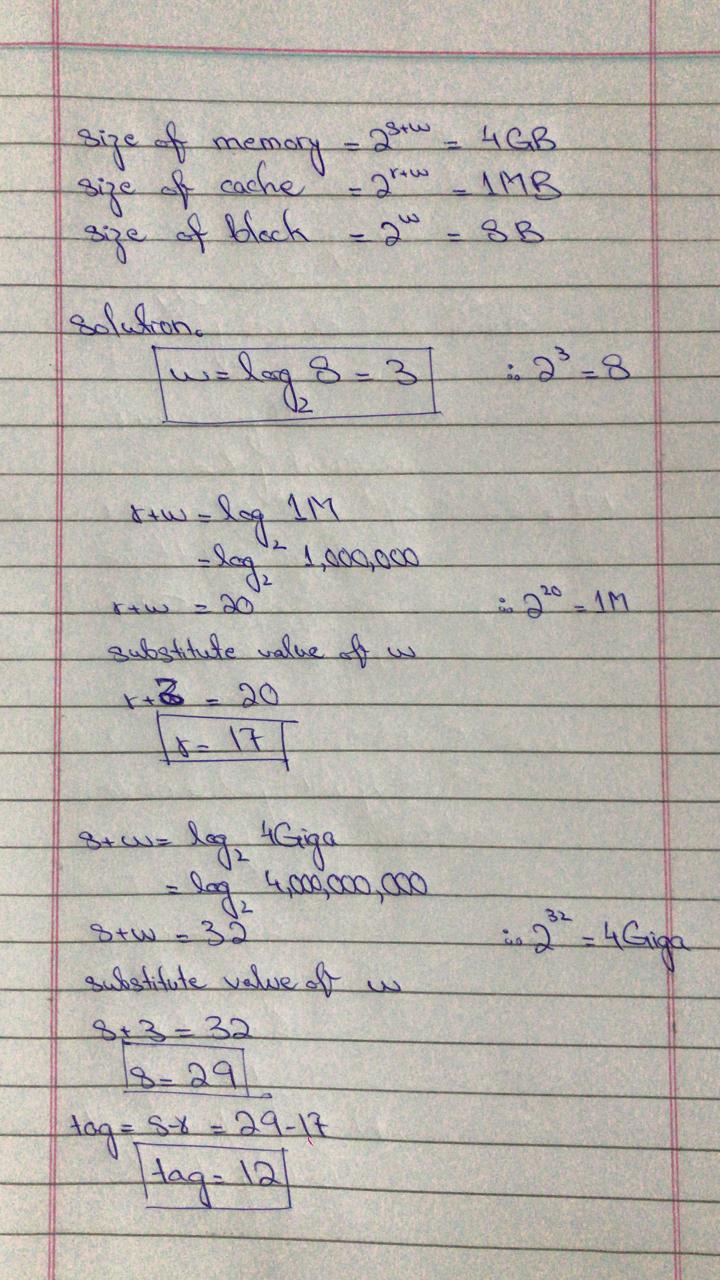 size of memory = 2^(s+w) = 4GB
size of cache = 2^(r+w) = 1MB
size of block = 2^w = 8B
Solution.
w = log₂ 8 = 3 ∴ 2³ = 8
r+w = log₂ 1M
= log₂ 1,000,000
r+w = 20 ∴ 2²⁰ = 1M
substitute value of w
r+3 = 20
r = 17
s+w = log₂ 4Giga
= log₂ 4,000,000,000
s+w = 32 ∴ 2³² = 4Giga
substitute value of w
s+3 = 32
s = 29
tag = s-r = 29-17
tag = 12